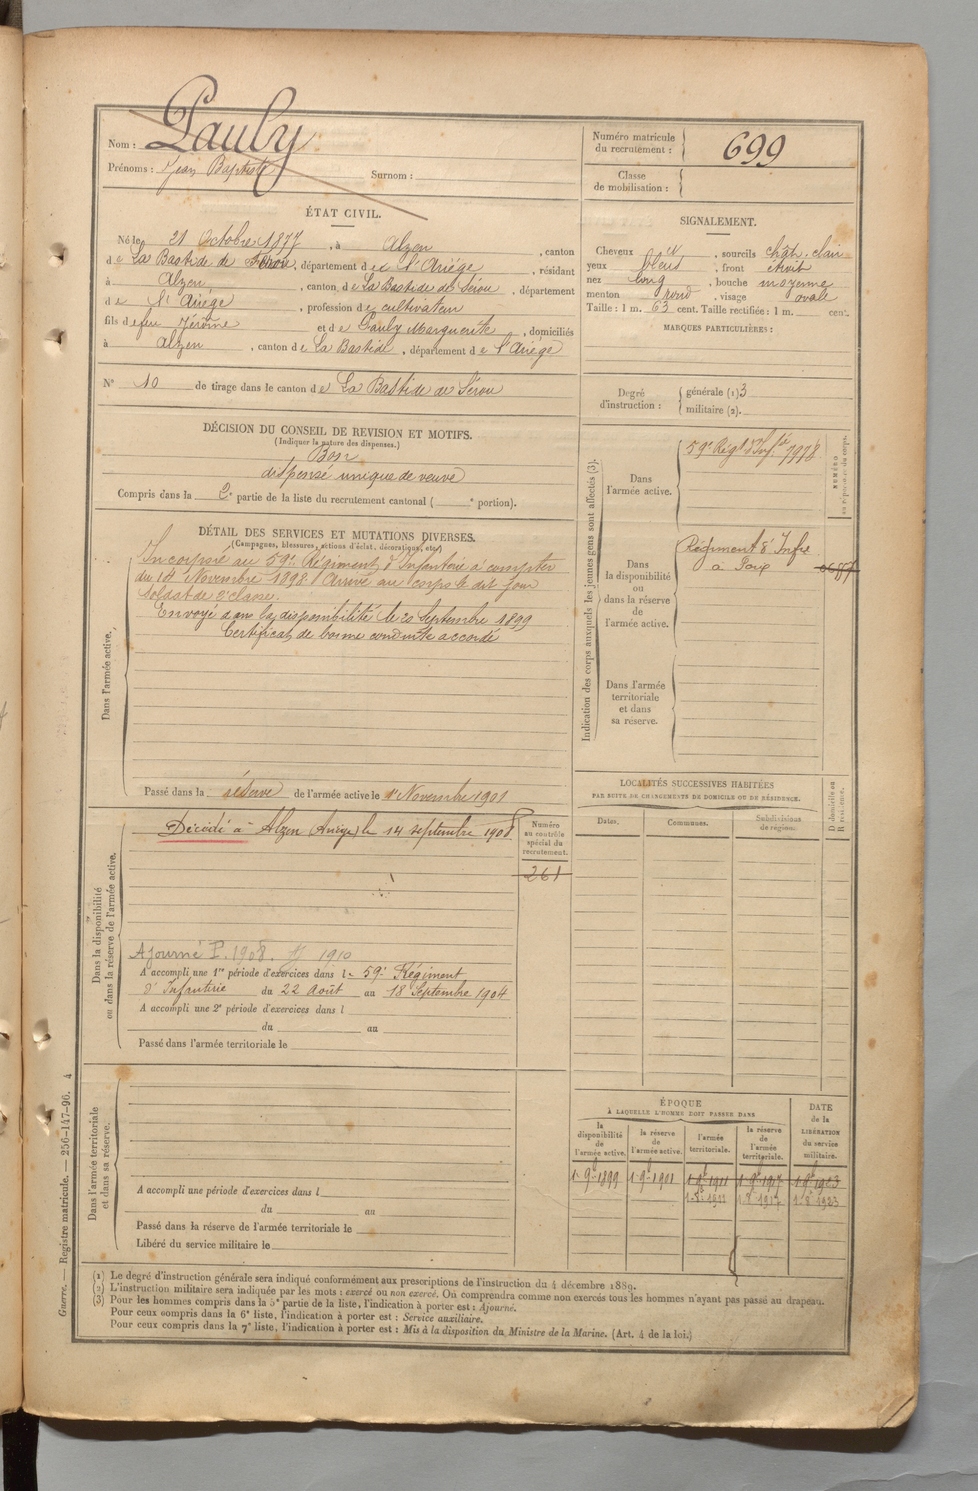 Nom : Pauly
Prénoms : Jean Baptiste Surnom :
Numéro matricule du recrutement : 699
Classe de mobilisation :
ÉTAT CIVIL.
Né le 21 Octobre 1877, à Alzen, canton
de La Bastide de Sérou, département de l'Ariége, résidant
à Alzen, canton de La Bastide de Sérou, département
de l'Ariége, profession de cultivateur
fils de feu Jérôme et de Pauly Marguerite, domiciliés
à Alzen, canton de La Bastide, département de l'Ariége
SIGNALEMENT.
Cheveux et, sourcils chât. clair
yeux bleus, front étroit
nez long, bouche moyenne
menton rond, visage ovale
Taille : 1 m. 63 cent. Taille rectifiée : 1 m. cent.
MARQUES PARTICULIÈRES :
N° 10 de tirage dans le canton de La Bastide de Sérou
Degré d'instruction : générale (1) 3
militaire (2).
DÉCISION DU CONSEIL DE REVISION ET MOTIFS.
(Indiquer la nature des dispenses.)
Bon
dispensé unique de veuve
Compris dans la 2e partie de la liste du recrutement cantonal ( e portion).
DÉTAIL DES SERVICES ET MUTATIONS DIVERSES.
(Campagnes, blessures, actions d'éclat, décorations, etc.)
Dans l'armée active.
Incorporé au 59e Régiment d'Infanterie à compter
du 14 Novembre 1898. Arrivé au corps le dit jour
soldat de 2e classe.
Envoyé dans la disponibilité le 20 Septembre 1899
Certificat de bonne conduite accordé
Passé dans la réserve de l'armée active le 1er Novembre 1901
Indication des corps auxquels les jeunes gens sont affectés (3).
NUMÉRO au répertoire du corps.
Dans l'armée active.
59e Régt d'Infie 7978
Dans la disponibilité ou dans la réserve de l'armée active.
Régiment d'Infie
à Foix
Dans l'armée territoriale et dans sa réserve.
LOCALITÉS SUCCESSIVES HABITÉES
PAR SUITE DE CHANGEMENTS DE DOMICILE OU DE RÉSIDENCE.
Dates. Communes. Subdivisions de région. D domicile ou R résidence.
Dans la disponibilité ou dans la réserve de l'armée active.
Décédé à Alzen (Ariége) le 14 septembre 1908
Numéro au contrôle spécial du recrutement.
261
Ajourné P. 1908. 1910
A accompli une 1re période d'exercices dans le 59e Régiment
d'Infanterie du 22 Août au 18 Septembre 1904
A accompli une 2e période d'exercices dans l
du au
Passé dans l'armée territoriale le
Dans l'armée territoriale et dans sa réserve.
A accompli une période d'exercices dans l
du au
Passé dans la réserve de l'armée territoriale le
Libéré du service militaire le
ÉPOQUE
À LAQUELLE L'HOMME DOIT PASSER DANS
la disponibilité de l'armée active. la réserve de l'armée active. l'armée territoriale. la réserve de l'armée territoriale. DATE de la LIBÉRATION du service militaire.
1er 9bre 1899 1er 9bre 1901 1er 9bre 1911 1er 9bre 1917 1er 9bre 1923
1er 8bre 1911 1er 8bre 1917 1er 8bre 1923
(1) Le degré d'instruction générale sera indiqué conformément aux prescriptions de l'instruction du 4 décembre 1889.
(2) L'instruction militaire sera indiquée par les mots : exercé ou non exercé. On comprendra comme non exercés tous les hommes n'ayant pas passé au drapeau.
(3) Pour les hommes compris dans la 5e partie de la liste, l'indication à porter est : Ajourné.
Pour ceux compris dans la 6e liste, l'indication à porter est : Service auxiliaire.
Pour ceux compris dans la 7e liste, l'indication à porter est : Mis à la disposition du Ministre de la Marine. (Art. 4 de la loi.)
Guerre. — Registre matricule. — 256-147-96. 4